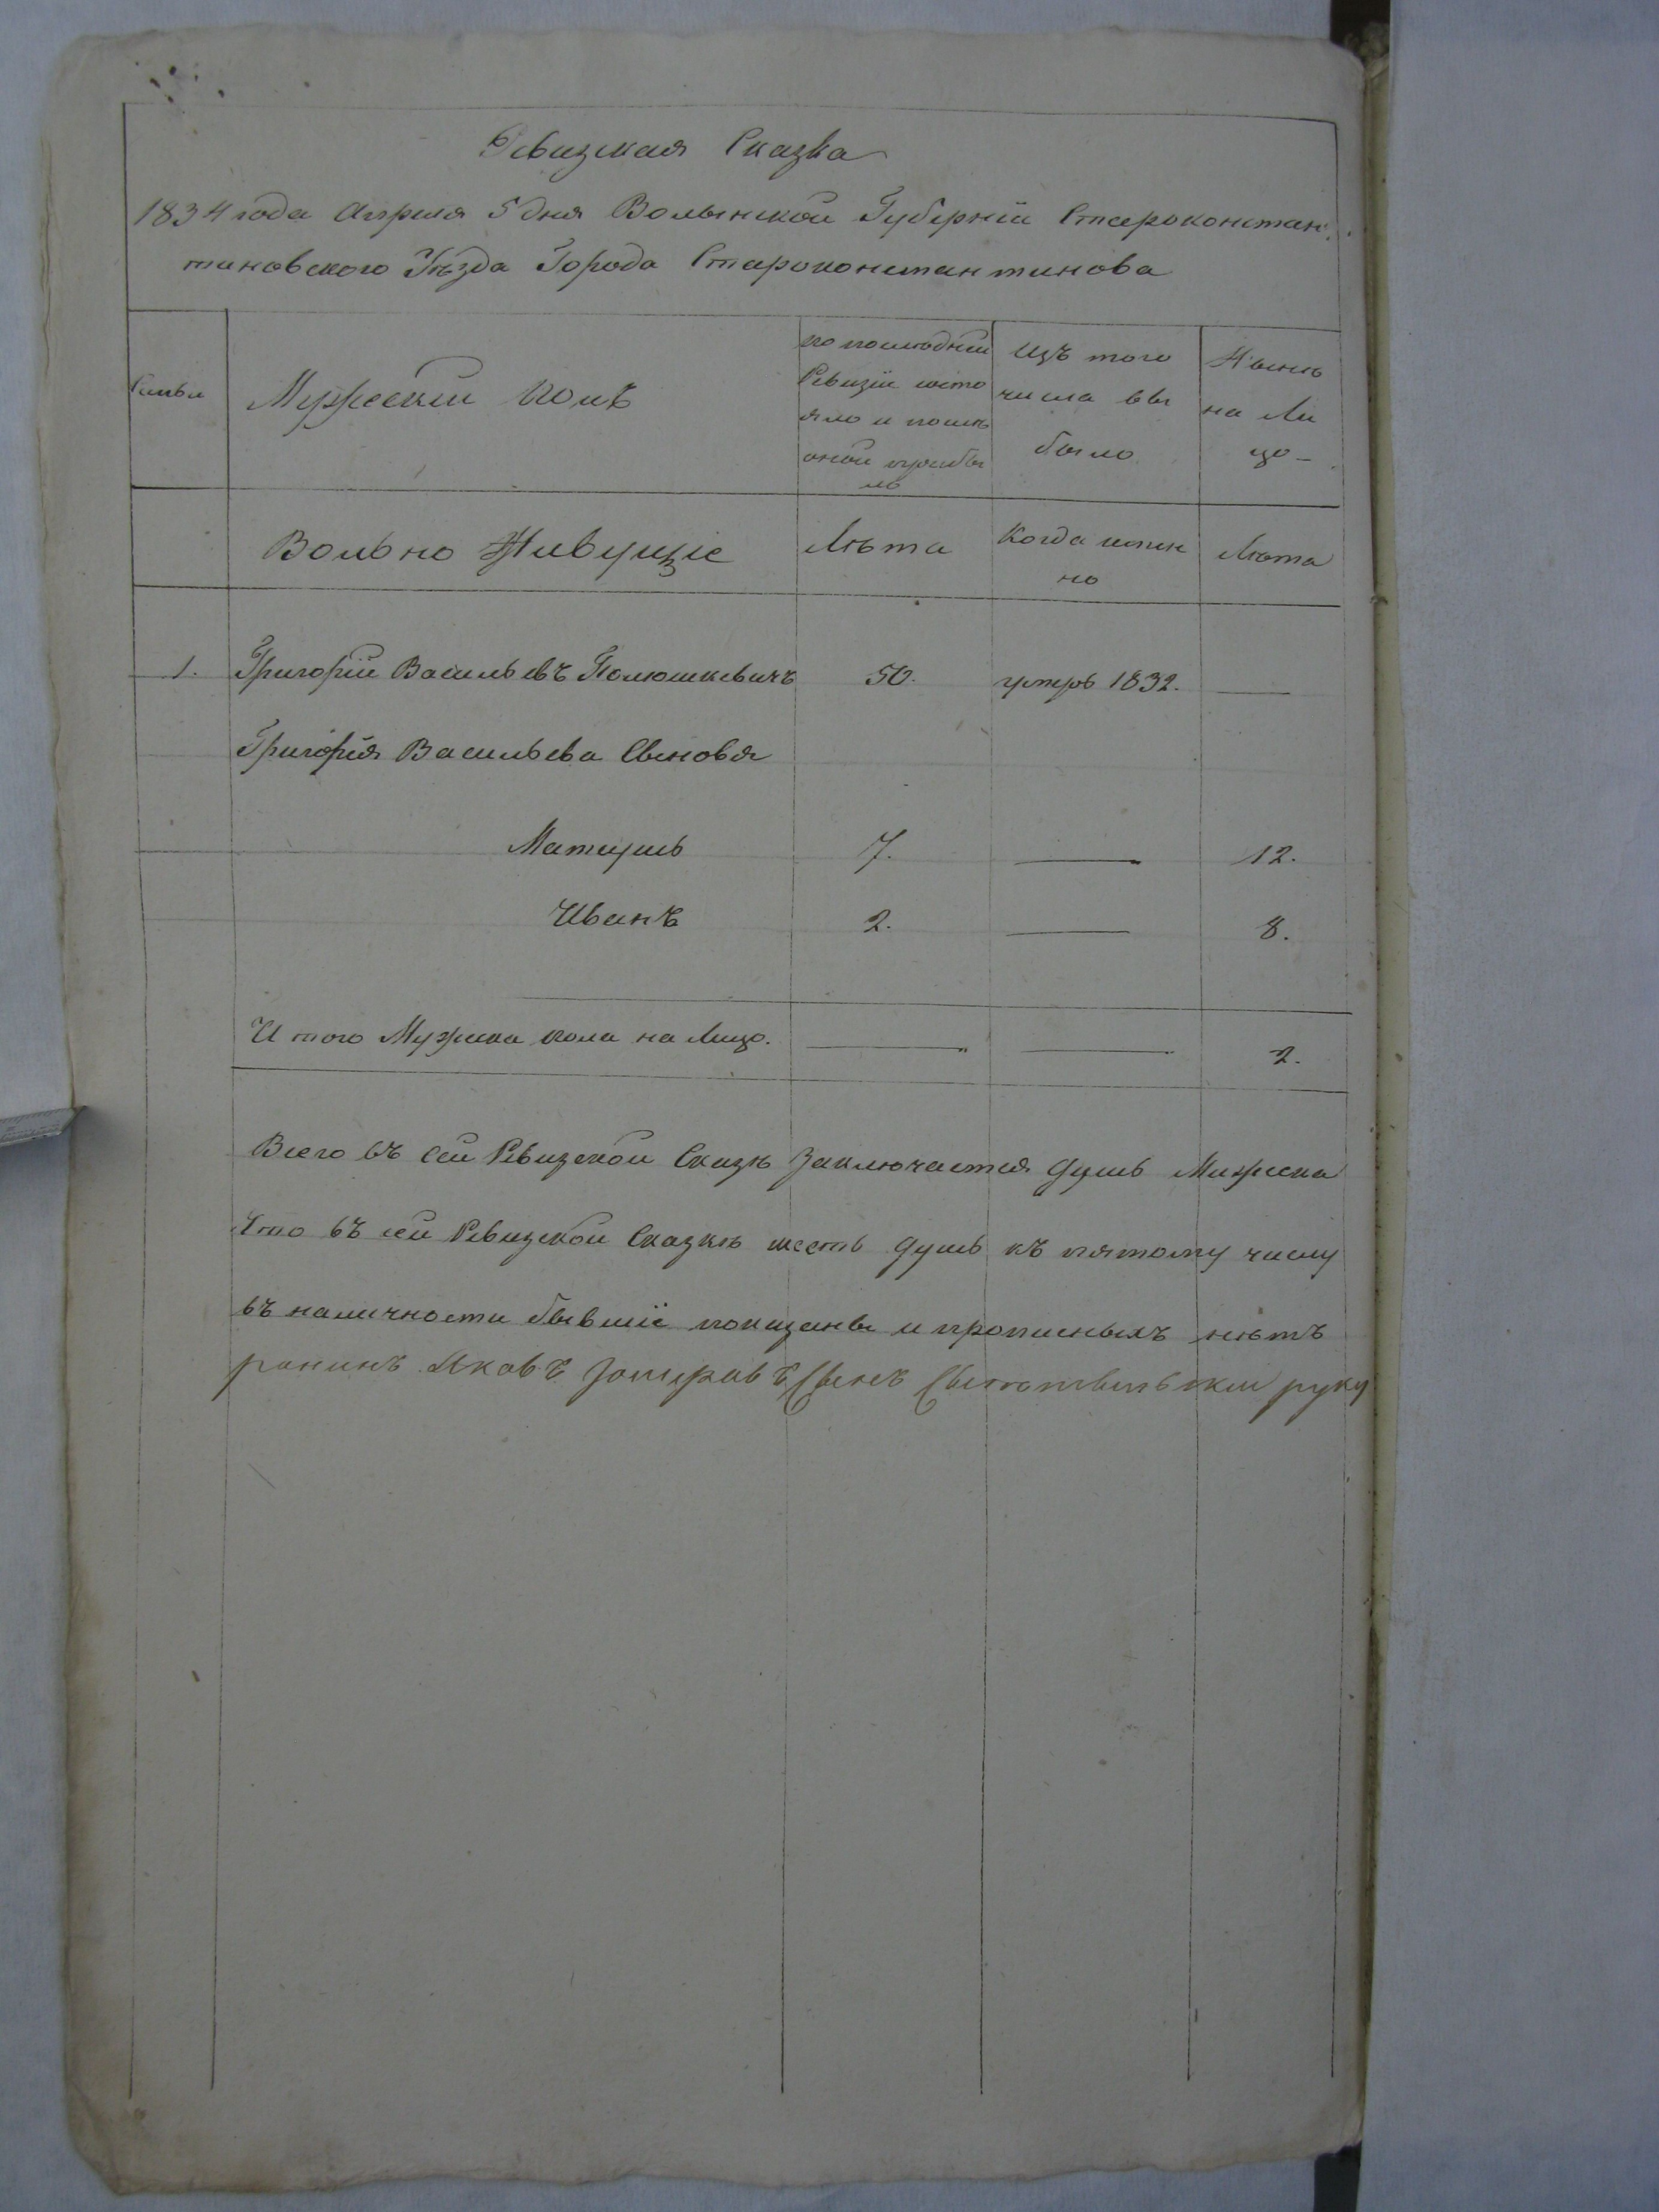 Ревизская Сказка
1834 года Апреля 5 дня Волынской Губерніи Староконстан
тиновского Уѣзда Города Староконстантинова
Семьи
Мужескій полъ
по последней
Ревизіи состо
яло и послѣ
оной прибы
ло
Изъ того
числа вы
было
Нынѣ
на Ли
цо
Вольно Живущіе
Лѣта
Когда имян
но
Лѣта
1. Григорій Васильевъ Полюшкевичъ 50. умеръ 1832. —
Григорія Васильева Сыновья
Матеушъ 7. — 12.
Иванъ 2. — 8.
И того Мужеска пола на Лицо. — — 2.
Всего въ сей Ревизской Сказкѣ Заключается душъ Мужеска
Что въ сей Ревизской Сказкѣ шесть душъ къ пятому числу
въ наличности бывшіе показаны и прописныхъ нѣтъ
Яковъ Сынъ руку